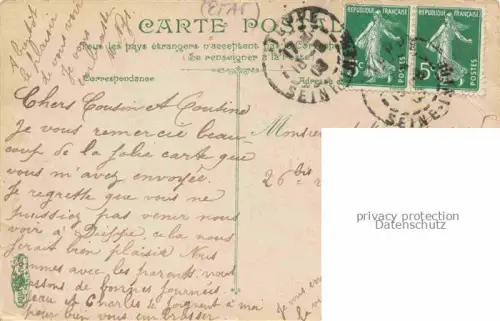 CARTE POSTALE
(ETAT)
Tous les pays étrangers n'acceptent pas la Correspondance
Se renseigner à la Poste
Correspondance
Adresse
RÉPUBLIQUE FRANÇAISE
5c
POSTES
RÉPUBLIQUE FRANÇAISE
5c
POSTES
SEINE-INF
SEINE-INF
plaisir
de vous voir
Je vous
Chers Cousin et Cousine
Je vous remercie beau-
coup de la jolie carte que
vous m'avez envoyée.
Je regrette que vous ne
puissiez pas venir nous
voir à Dieppe, cela nous
ferait bien plaisir. Nous
sommes avec les parents, nous
passons de bonnes journées.
et Charles se joignent à moi
pour bien vous embrasser
Monsieur
26 bis
privacy protection
Datenschutz